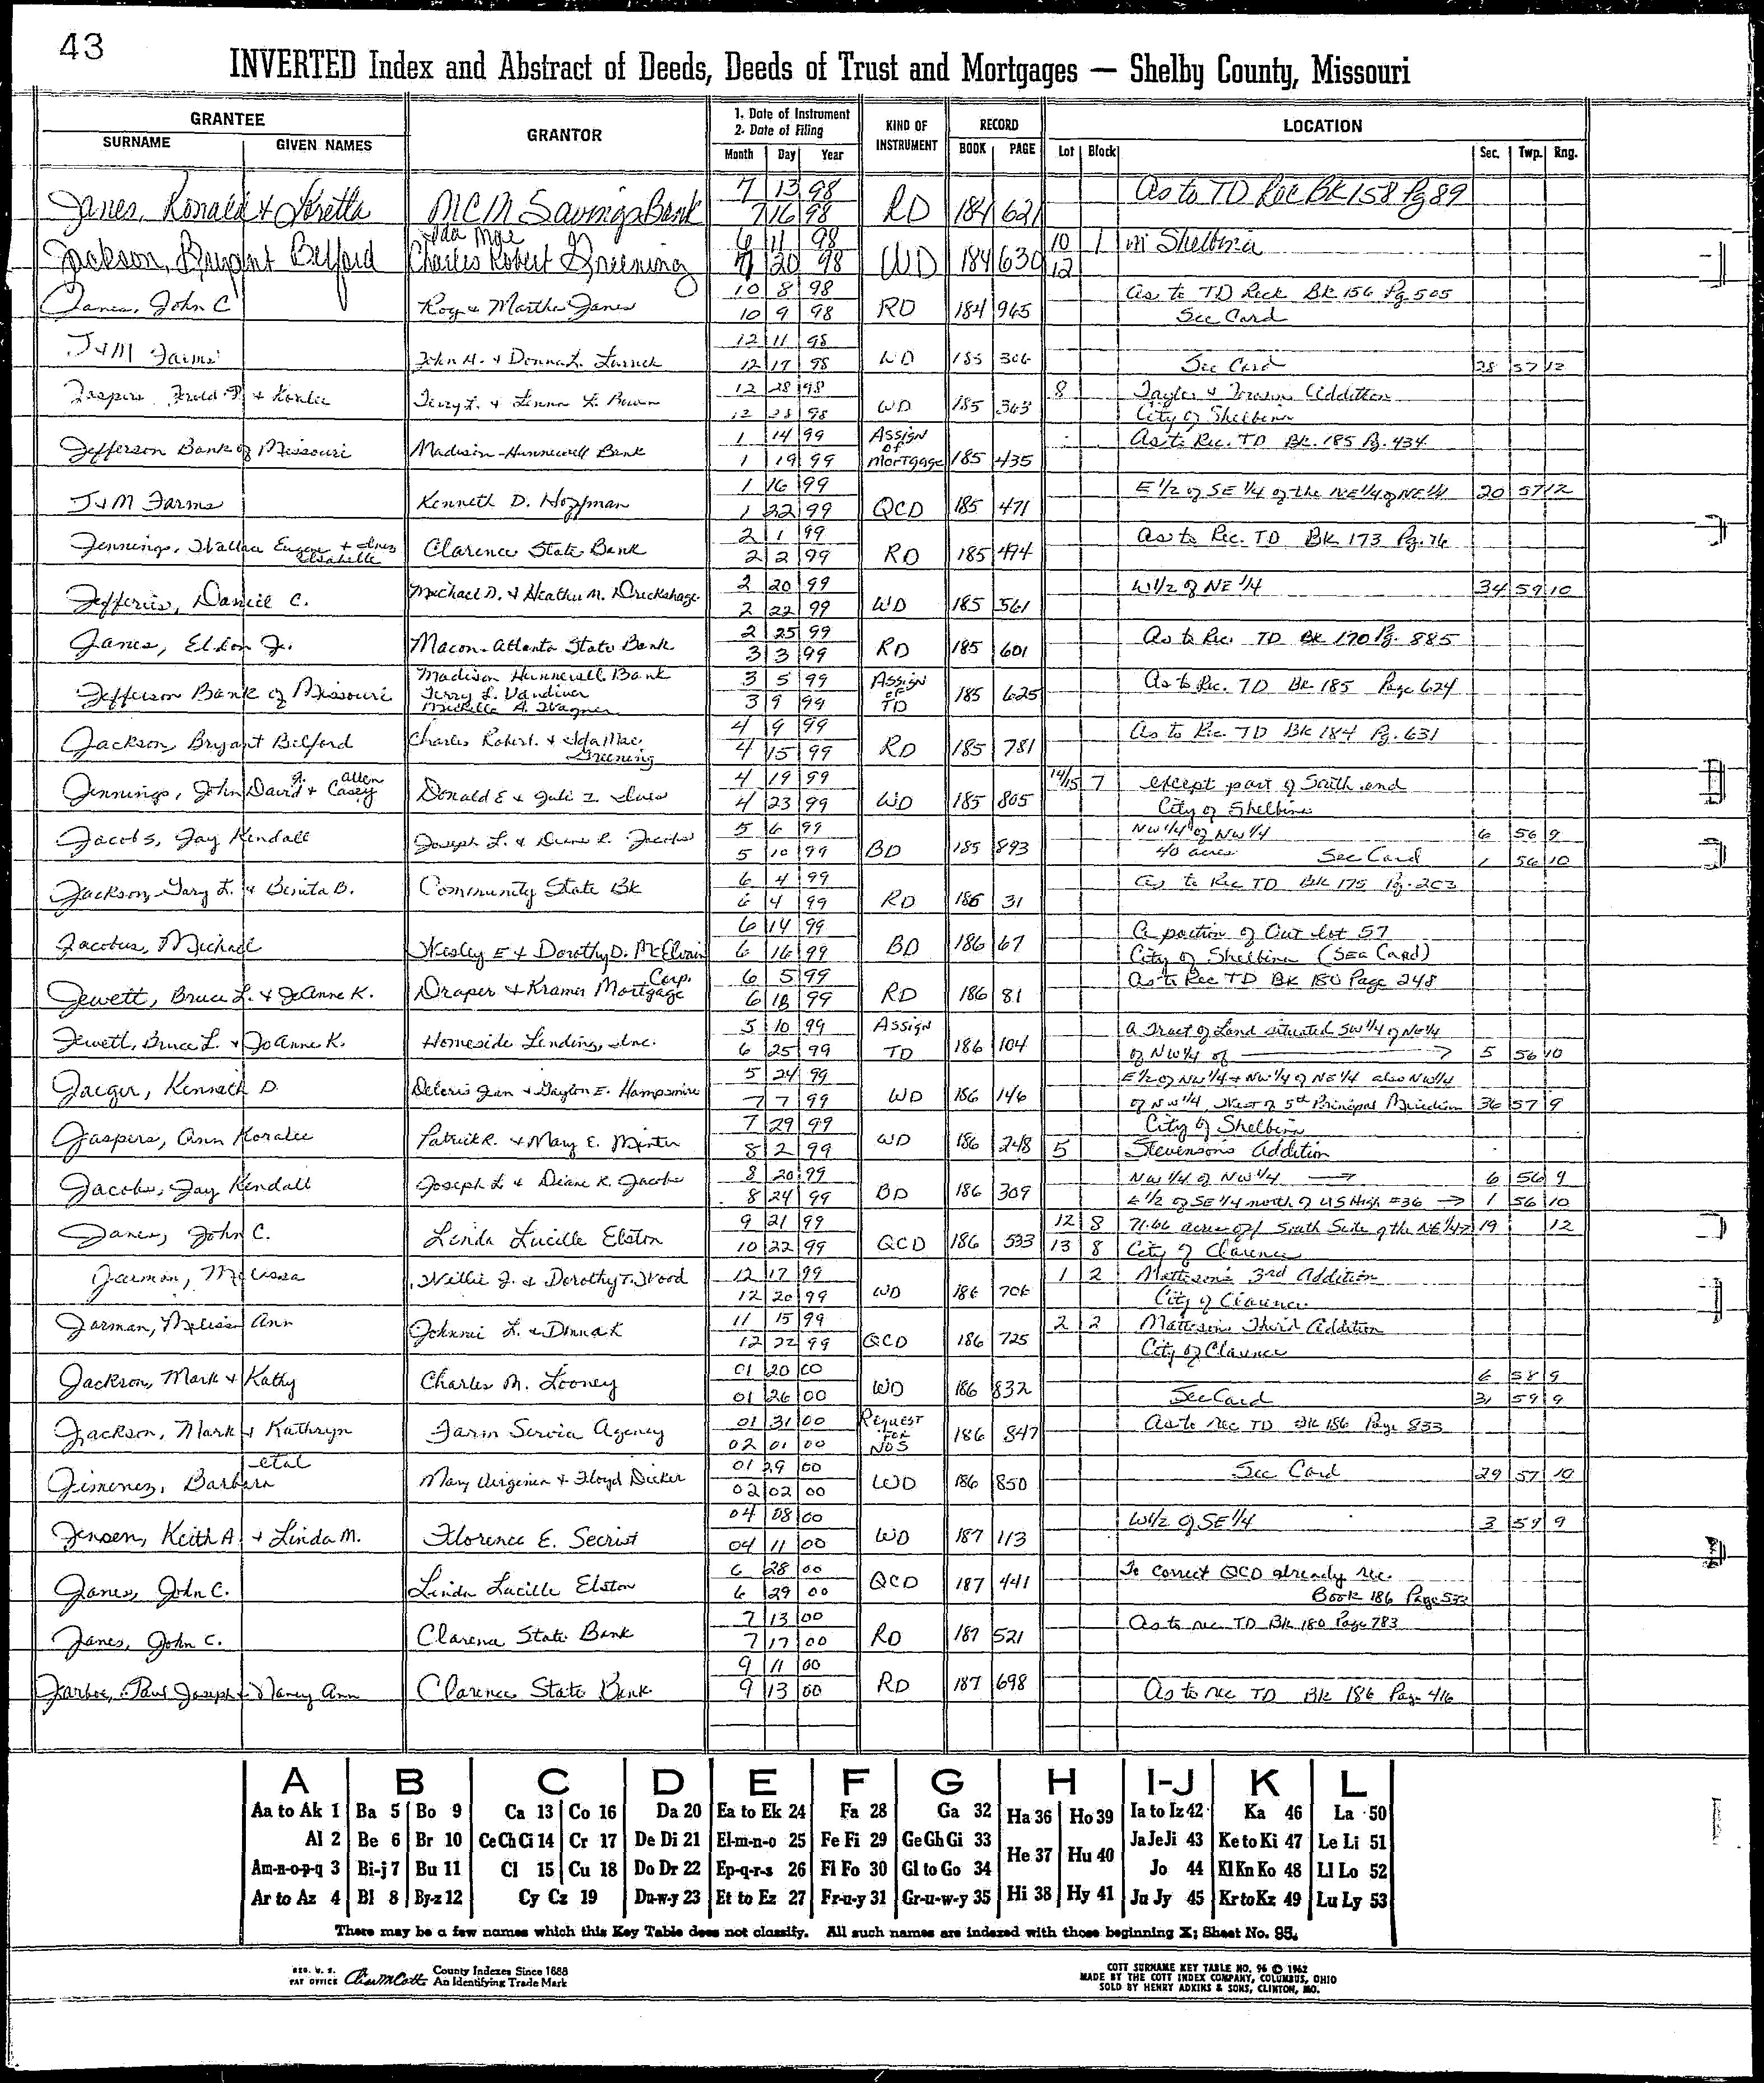 43
INVERTED Index and Abstract of Deeds, Deeds of Trust and Mortgages — Shelby County, Missouri
GRANTEE GRANTOR 1. Date of Instrument 2. Date of Filing KIND OF INSTRUMENT RECORD LOCATION
SURNAME GIVEN NAMES Month Day Year BOOK PAGE Lot Block Sec. Twp. Rng.
Janes, Ronald & Loretta MCM Savings Bank 7 13 98 RD 184 621 As to TD Rec BK 158 Pg 89
7 16 98
Jackson, Bryant Belford Ida Mae 6 11 98 WD 184 630 10 1 in Shelbina
Charles Robert Greening 7 20 98 12
Janes, John C Roy & Martha Janes 10 8 98 RD 184 965 As to TD Reck BK 156 Pg 505
10 9 98 See Card
J & M Farms John H. & Donna L. 12 11 98 WD 185 306
12 17 98 See Card 28 57 12
Jaspers & Koralee Terry L. & L. 12 28 98 WD 185 363 8 Taylor & Addition
12 28 98 City of Shelbina
Jefferson Bank of Missouri Madison-Hunnewell Bank 1 14 99 Assign of Mortgage 185 435 As to Rec. TD BK. 185 Pg. 434
1 19 99
J & M Farms Kenneth D. Hoffman 1 16 99 QCD 185 471 E 1/2 of SE 1/4 of the NE 1/4 of NE 1/4 20 57 12
1 22 99
Jennings, Wallace Eugene & Ines Elsabelle Clarence State Bank 2 1 99 RD 185 494 As to Rec. TD BK 173 Pg. 76
2 2 99
Jefferies, Daniel C. Michael D. & Heather M. Dreckshage 2 20 99 WD 185 561 W 1/2 of NE 1/4 34 59 10
2 22 99
Janes, Eldon Jr. Macon-Atlanta State Bank 2 25 99 RD 185 601 As to Rec TD BK 170 Pg. 885
3 3 99
Jefferson Bank of Missouri Madison Hunnewell Bank 3 5 99 Assign of TD 185 625 As to Rec. TD BK 185 Page 624
Terry L. Vandiver
Michelle A. Wagner 3 9 99
Jackson, Bryant Belford Charles Robert & Ida Mae Greening 4 9 99 RD 185 781 As to Rec TD BK 184 Pg. 631
4 15 99
Jennings, John David & Casey Allen Donald E & Juli I. 4 19 99 WD 185 805 14/15 7 except part of South end
4 23 99 City of Shelbina
Jacobs, Jay Kendall Joseph L. & Diane K. Jacobs 5 6 99 BD 185 893 NW 1/4 of NW 1/4 6 56 9
5 10 99 40 acres See Card 1 56 10
Jackson, Gary L. & Benita B. Community State Bk 6 4 99 RD 186 31 As to Rec TD BK 175 Pg. 203
6 4 99
Jacobus, Michael Wesley E & Dorothy D. McElvain 6 14 99 BD 186 67 A portion of Out lot 57
6 16 99 City of Shelbina (See Card)
Jewett, Bruce L. & JoAnne K. Draper & Kramer Mortgage Corp. 6 5 99 RD 186 81 As to Rec TD BK 180 Page 248
6 18 99
Jewett, Bruce L. & JoAnne K. Homeside Lending, Inc. 5 10 99 Assign TD 186 104 A Tract of Land situated SW 1/4 of NE 1/4
6 25 99 of NW 1/4 of 5 56 10
Jaeger, Kenneth D. Deloris Jean & Gayton E. Hampsmire 5 24 99 WD 186 146 E 1/2 of NW 1/4 & NW 1/4 of NE 1/4 also NW 1/4
7 7 99 of NW 1/4, West of 5th Principal Meridian 36 57 9
Jaspers, Ann Koralee Patrick R. & Mary E. Minter 7 29 99 WD 186 248 City of Shelbina
8 2 99 5 Stevenson's Addition
Jacobs, Jay Kendall Joseph L & Diane K. Jacobs 8 20 99 BD 186 309 NW 1/4 of NW 1/4 6 56 9
8 24 99 E 1/2 of SE 1/4 north of US High #36 1 56 10
Janes, John C. Linda Lucille Elston 9 21 99 QCD 186 533 12 8 71.66 acres off South Side of the NE 1/4 19 12
10 22 99 13 8 City of Clarence
Jarman, Melissa Willie J. & Dorothy T. Wood 12 17 99 WD 186 706 1 2 Matteson's 3rd Addition
12 20 99 City of Clarence
Jarman, Melissa Ann Johnnie L. & Donna K 11 15 99 QCD 186 725 2 2 Matteson's Third Addition
12 22 99 City of Clarence
Jackson, Mark & Kathy Charles M. Looney 01 20 00 WD 186 832 6 58 9
01 26 00 See Card 31 59 9
Jackson, Mark & Kathryn Farm Service Agency 01 31 00 Request for NOS 186 847 As to rec TD BK 186 Page 833
02 01 00
Jimenez, Barbara etal Mary Virginia & Floyd Dicker 01 29 00 WD 186 850 See Card 29 57 10
02 02 00
Jensen, Keith A. & Linda M. Florence E. Secrist 04 08 00 WD 187 113 W 1/2 of SE 1/4 3 59 9
04 11 00
Janes, John C. Linda Lucille Elston 6 28 00 QCD 187 441 To correct QCD already rec.
6 29 00 Book 186 Page 533
Janes, John C. Clarence State Bank 7 13 00 RD 187 521 As to rec TD BK 180 Page 783
7 17 00
Jarboe, Paul Joseph & Nancy Ann Clarence State Bank 9 11 00 RD 187 698 As to rec TD BK 186 Page 416
9 13 00
A B C D E F G H I-J K L
Aa to Ak 1 Ba 5 Bo 9 Ca 13 Co 16 Da 20 Ea to Ek 24 Fa 28 Ga 32 Ha 36 Ho 39 Ia to Iz 42 Ka 46 La 50
Al 2 Be 6 Br 10 Ce Ch Ci 14 Cr 17 De Di 21 El-m-n-o 25 Fe Fi 29 Ge Gh Gi 33 He 37 Hu 40 Ja Je Ji 43 Ke to Ki 47 Le Li 51
Am-n-o-p-q 3 Bi-j 7 Bu 11 Cl 15 Cu 18 Do Dr 22 Ep-q-r-s 26 Fl Fo 30 Gl to Go 34 Jo 44 Kl Kn Ko 48 Ll Lo 52
Ar to Az 4 Bl 8 By-z 12 Cy Cz 19 Du-w-y 23 Et to Ez 27 Fr-u-y 31 Gr-u-w-y 35 Hi 38 Hy 41 Ju Jy 45 Kr to Kz 49 Lu Ly 53
There may be a few names which this Key Table does not classify. All such names are indexed with those beginning X; Sheet No. 95.
REG. U. S. PAT OFFICE County Indexes Since 1888 An Identifying Trade Mark
COTT SURNAME KEY TABLE NO. 96 © 1962
MADE BY THE COTT INDEX COMPANY, COLUMBUS, OHIO
SOLD BY HENRY ADKINS & SONS, CLINTON, MO.